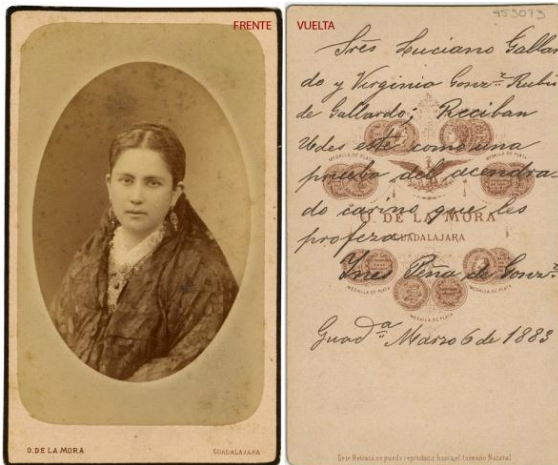 FRENTE
VUELTA
O. DE LA MORA
GUADALAJARA
453073
Sres Luciano Gallar
do y Virginia Gonz.z Rubio
de Gallardo; Reciban
Udes este como una
prueba del acendra-
do cariño que les
profeza
Ynes Peña de Gonz.z
Guad.a Marzo 6 de 1883
MEDALLA DE PLATA
MEDALLA DE PLATA
O. DE LA MORA
GUADALAJARA
MEDALLA DE PLATA
MEDALLA DE PLATA
MEDALLA DE PLATA
Este Retrato se puede reproducir hasta el tamaño Natural